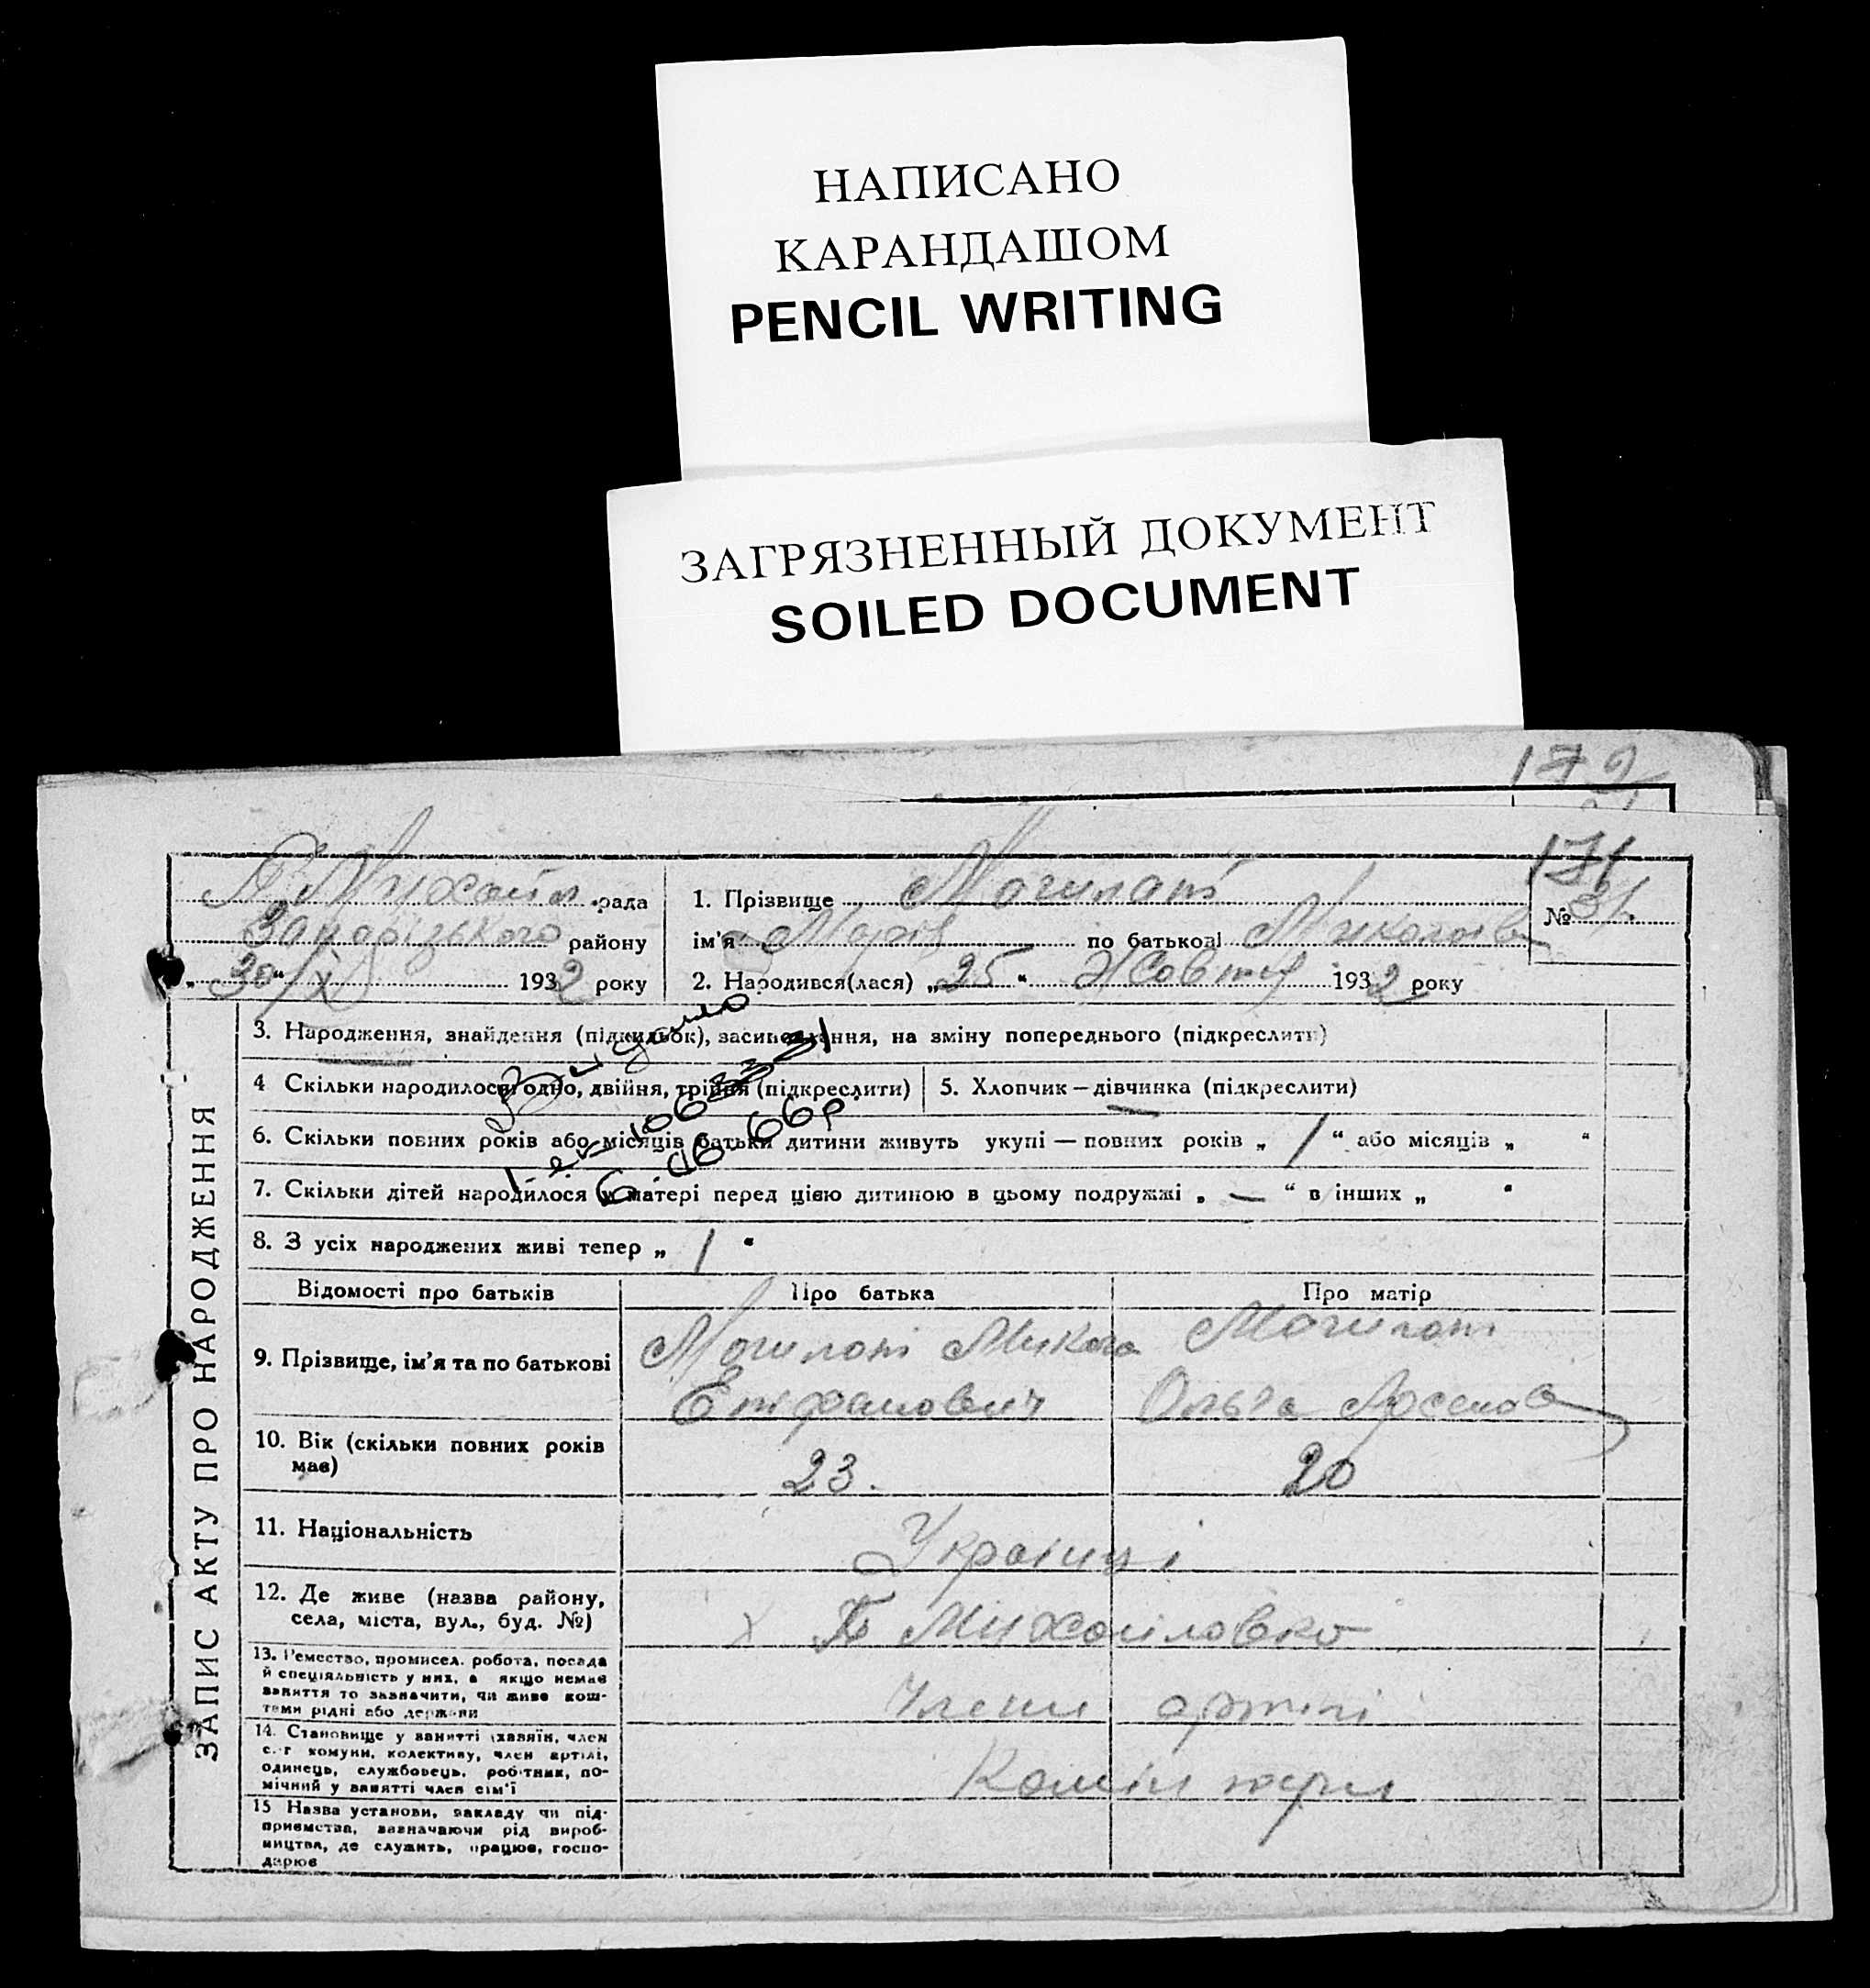 НАПИСАНО
КАРАНДАШОМ
PENCIL WRITING
ЗАГРЯЗНЕННЫЙ ДОКУМЕНТ
SOILED DOCUMENT
172
171
рада
району
30/X 1932 року
1. Прізвище Могилат
ім'я Марія по батькові Миколаєв
2. Народився(лася) „25“ Жовтня 1932 року
№ 31
ЗАПИС АКТУ ПРО НАРОДЖЕННЯ
3. Народження, знайдення (підкидьок), засиновлення, на зміну попереднього (підкреслити)
4 Скільки народилося: одно, двійня, трійня (підкреслити)
5. Хлопчик — дівчинка (підкреслити)
6. Скільки повних років або місяців батьки дитини живуть укупі — повних років „ 1 “ або місяців „ “
7. Скільки дітей народилося у матері перед цією дитиною в цьому подружжі „ — “ в інших „ “
8. З усіх народжених живі тепер „ 1 “
Видано
6.06.66р.
Відомості про батьків
Про батька
Про матір
9. Прізвище, ім'я та по батькові
Могилат Микола
Епіфанович
Могилат
Ольга Арсенов
10. Вік (скільки повних років
має)
23.
20
11. Національність
Українці
12. Де живе (назва району,
села, міста, вул., буд. №)
х П Михайловко
13. Ремество, промисел. робота, посада
й спеціяльність у них, а якщо немає
заняття то зазначити, чи живе кош-
тами рідні або держави
Члени артілі
14. Становище у занятті (хазяїн, член
с.-г комуни, колективу, член артілі,
одинець, службовець, робітник, по-
мічний у занятті член сім'ї
15 Назва установи, закладу чи під-
приємства, зазначаючи рід вироб-
ництва, де служить, працює, госпо-
дарює